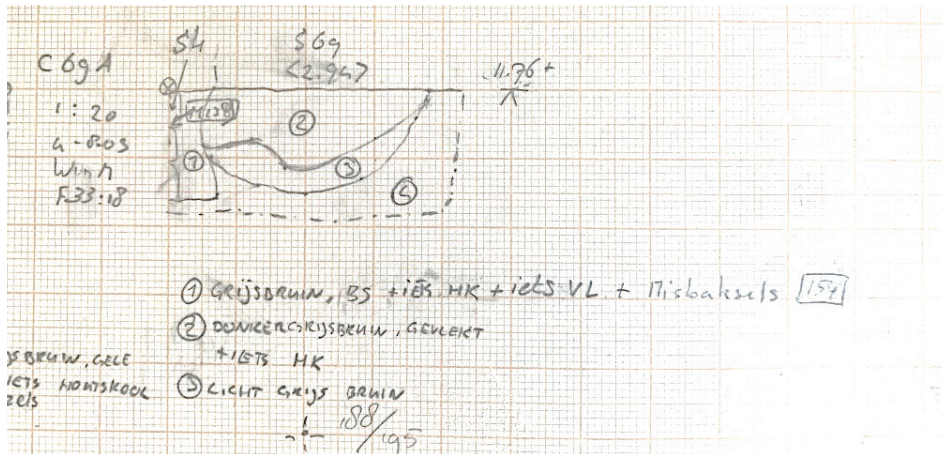 C 69 A
1:20
4-8-03
F33:18
54
S 69
<2.94>
11.76+
M138
①
②
③
④
① GRIJSBRUIN, BS + IETS HK + iets VL + Misbaksels 154
② DONKERGRIJSBRUIN, GEVLEKT
+ IETS HK
③ LICHT GRIJS BRUIN
JSBRUIN, GELE
IETS HOUTSKOOL
188/195